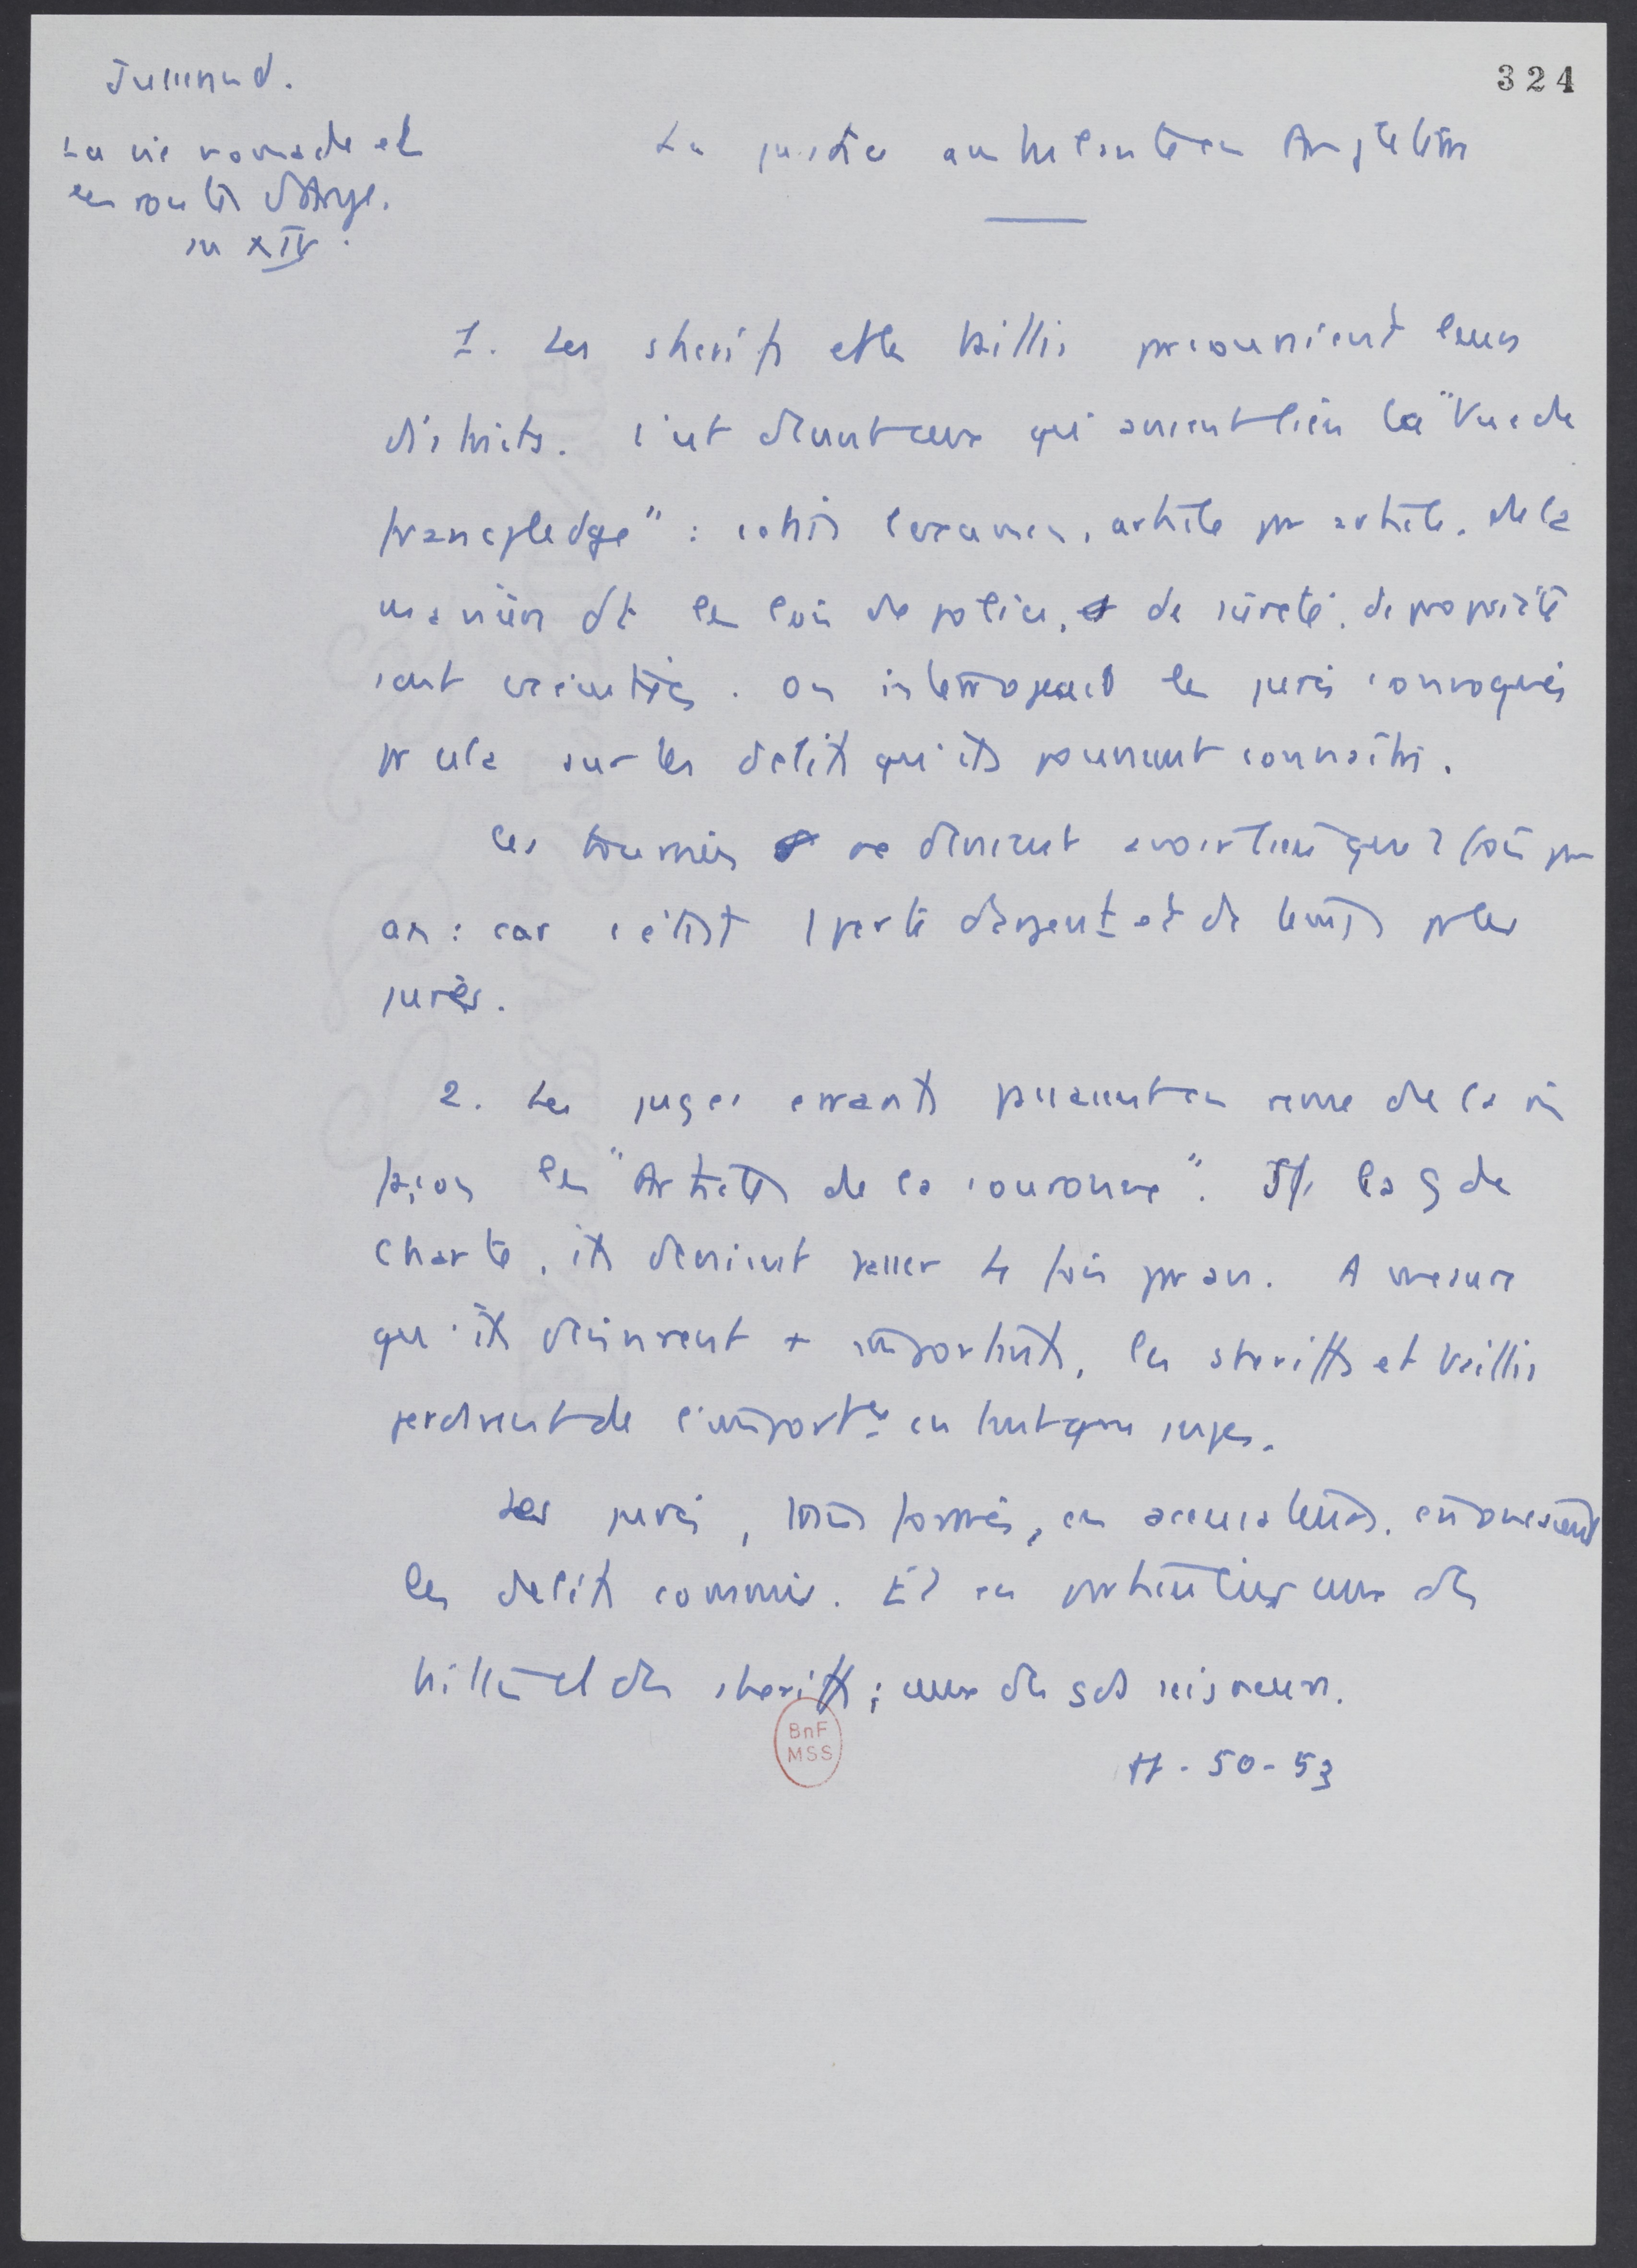 Jusserand.
La vie nomade et
les routes d'Angl.
au XIV.
324
La justice ambulante en Angleterre
1. Les sherifs et les baillis parcouraient leurs
districts. C'est devant eux qu'avait lieu la "Vue de
francpledge" : càd l'examen, article par article, de la
manière dt les lois de police, de sûreté, de propriété
sont exécutées. On interrogeait les jurés convoqués
pr cela sur les délits qu'ils pouvaient connaître.
Ces tournées ne devaient avoir lieu que 2 fois par
an : car c'était 1 perte d'argent et de temps pr les
jurés.
2. Les juges errants passaient en revue de la m̂
façon les "Articles de la couronne". Sf. la gde
Charte, ils devaient passer 4 fois par an. A mesure
qu'ils devinrent + importants, les sheriffs et baillis
perdirent de l'importce en tant que juges.
Les jurés, transformés, en accusateurs,
les délits commis. Et en particulier ceux des
baillis et des sheriffs ; ceux des gds seigneurs.
pp. 50-53
BnF
MSS